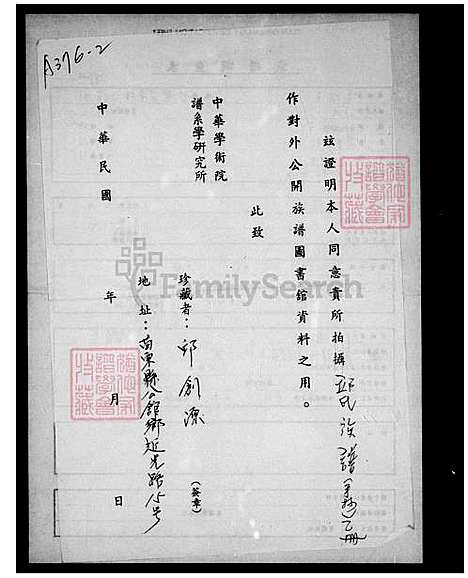 A376-2
茲證明本人同意貴所拍攝邱氏族譜(手抄)乙冊
作對外公開族譜圖書館資料之用。
此致
中華學術院
譜系學研究所
珍藏者：邱創源(簽章)
地址：苗栗縣公館鄉
中華民國 年 月 日
FamilySearch